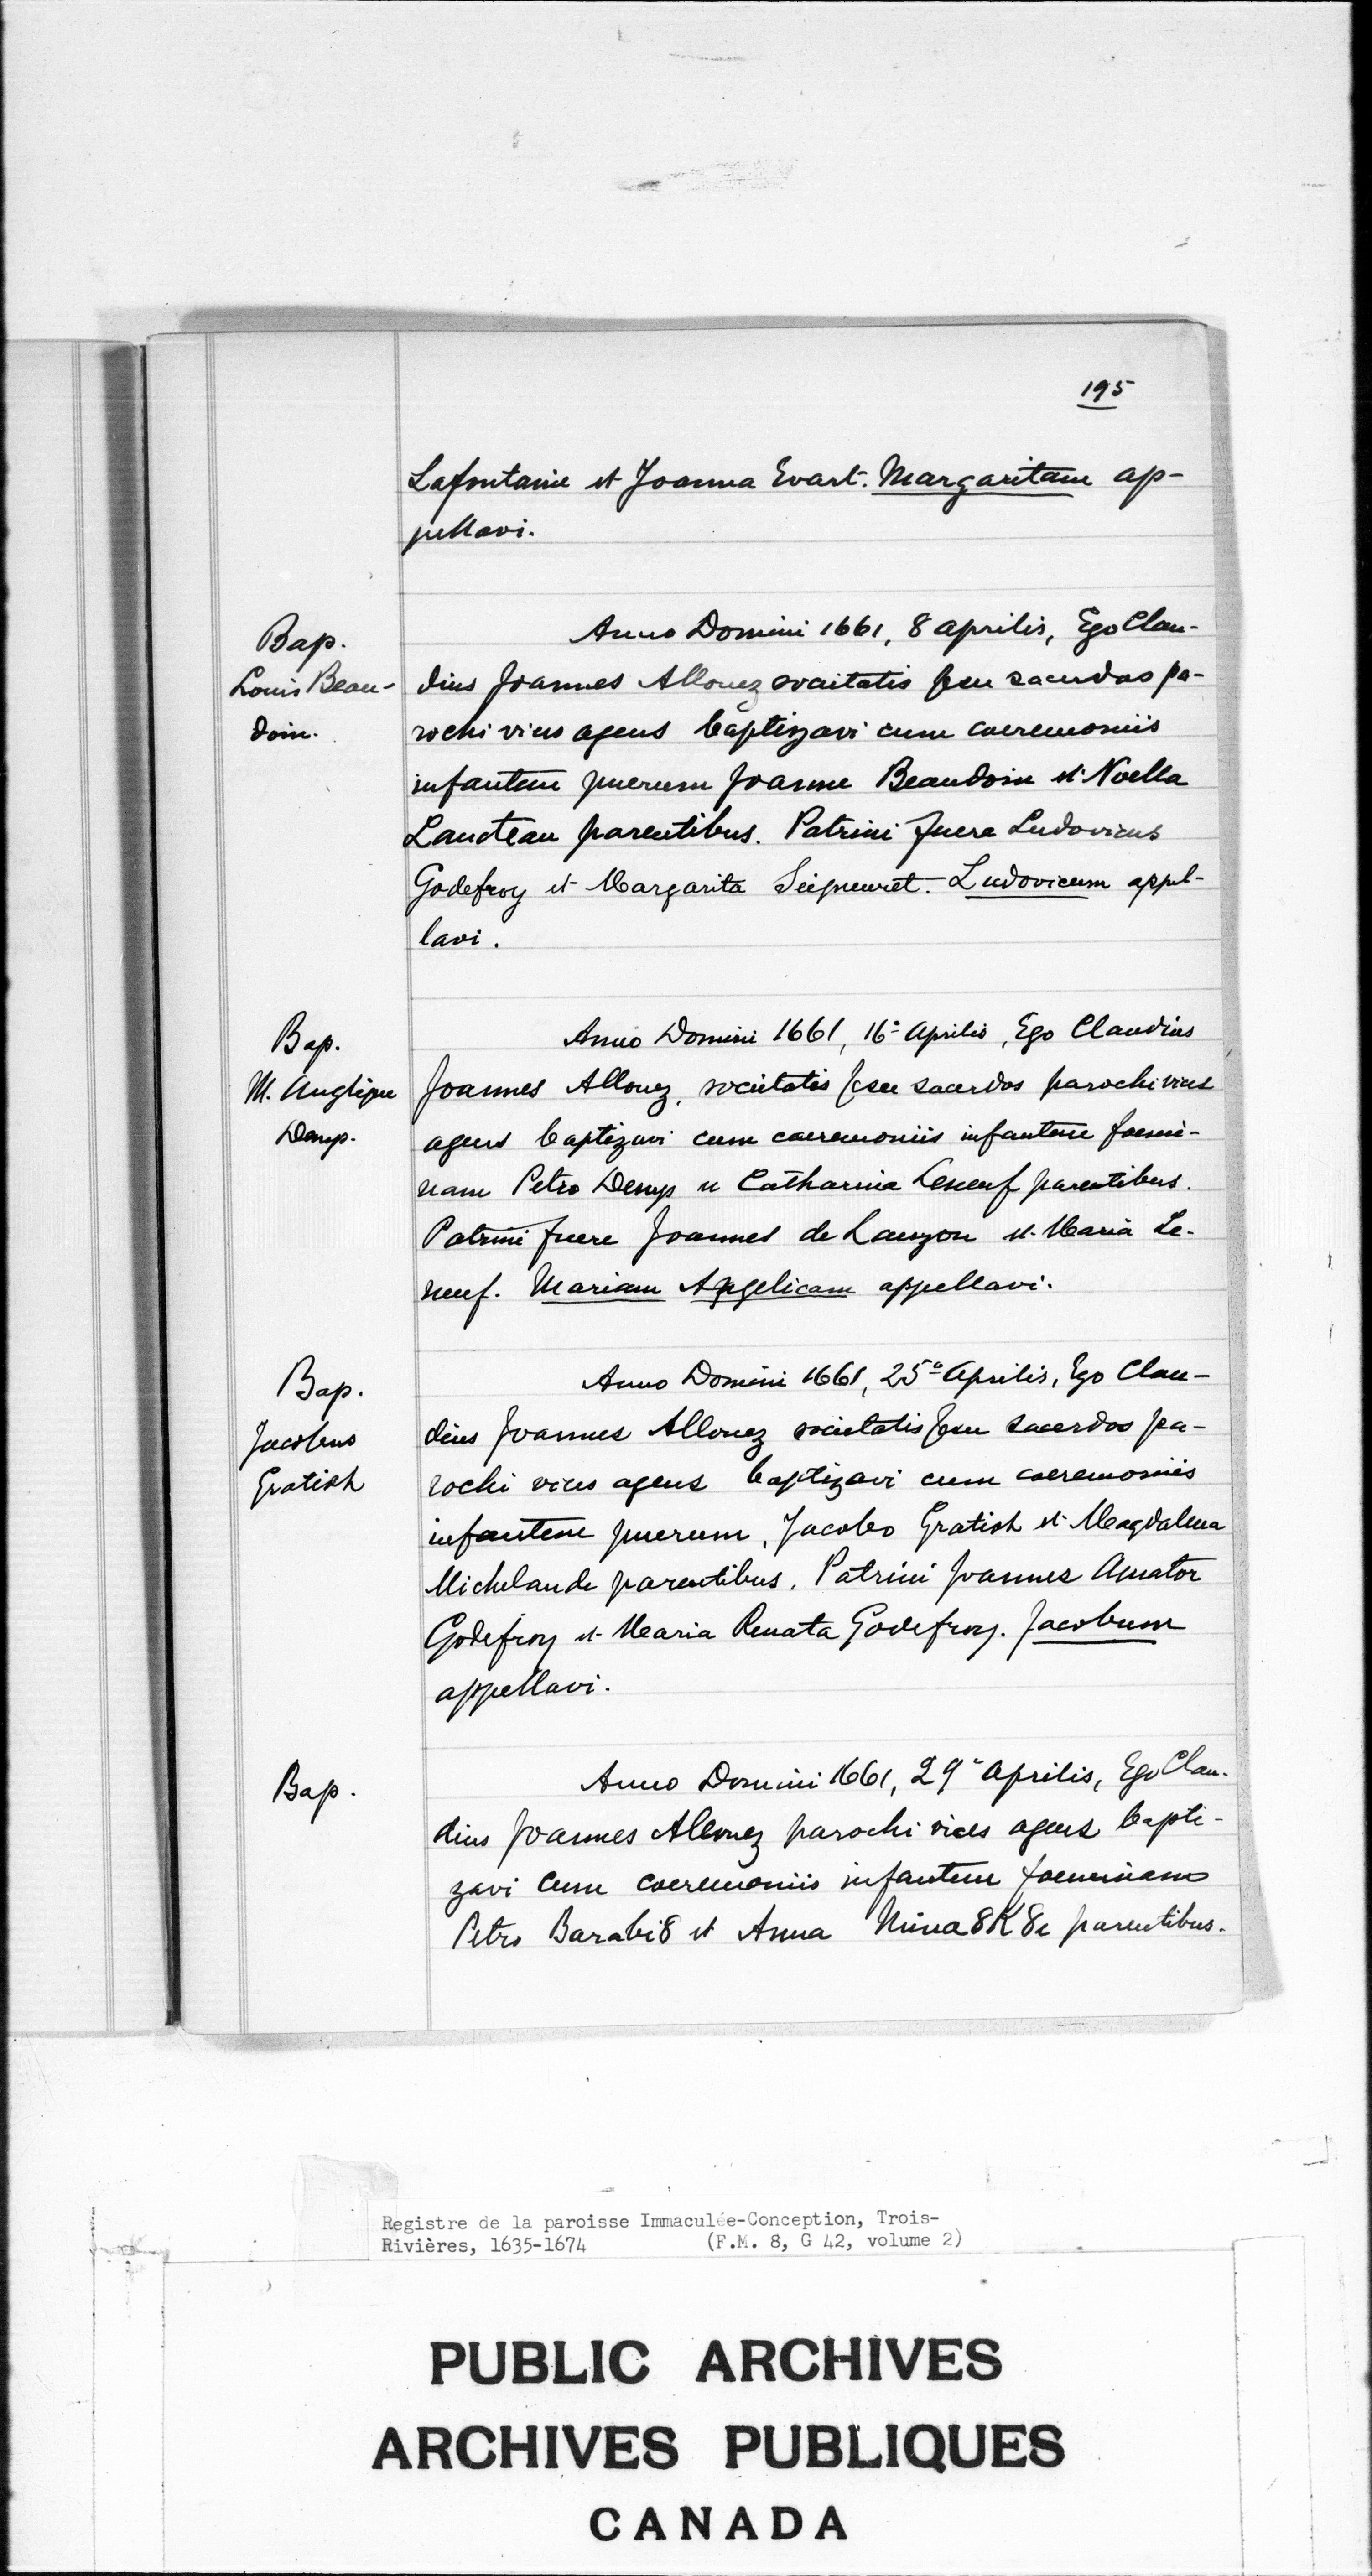 195
Lafontaine et Joanna Evart. Margaritam ap-
pellavi.
Bap.
Louis Beau-
doin.
Anno Domini 1661, 8 aprilis, Ego Clau-
dius Joannes Allouez societatis Jesu sacerdos pa-
rochi vices agens baptizavi cum caeremoniis
infantem puerum Joanne Beaudoin et Noella
Landteau parentibus. Patrini fuere Ludovicus
Godefroy et Margarita Seigneuret. Ludovicum appel-
lavi.
Bap.
M. Anglique
Denys.
Anno Domini 1661, 16° Aprilis, Ego Claudius
Joannes Allouez, societatis Jesu sacerdos parochi vices
agens baptizavi cum caeremoniis infantem foemi-
nam Petro Denys et Catharina Leneuf parentibus.
Patrini fuere Joannes de Lauzon et Maria Le-
neuf. Mariam Angelicam appellavi.
Bap.
Jacobus
Gratioh
Anno Domini 1661, 25° Aprilis, Ego Clau-
dius Joannes Allouez societatis Jesu sacerdos pa-
rochi vices agens baptizavi cum caeremoniis
infantem puerum, Jacobo Gratioh et Magdalena
Michelande parentibus. Patrini Joannes Amator
Godefroy et Maria Renata Godefroy. Jacobum
appellavi.
Bap.
Anno Domini 1661, 29° Aprilis, Ego Clau-
dius Joannes Allouez parochi vices agens bapti-
zavi cum coeremoniis infantem foeminam
Petro Barabi8 et Anna parentibus.
Registre de la paroisse Immaculée-Conception, Trois-
Rivières, 1635-1674 (F.M. 8, G 42, volume 2)
PUBLIC ARCHIVES
ARCHIVES PUBLIQUES
CANADA